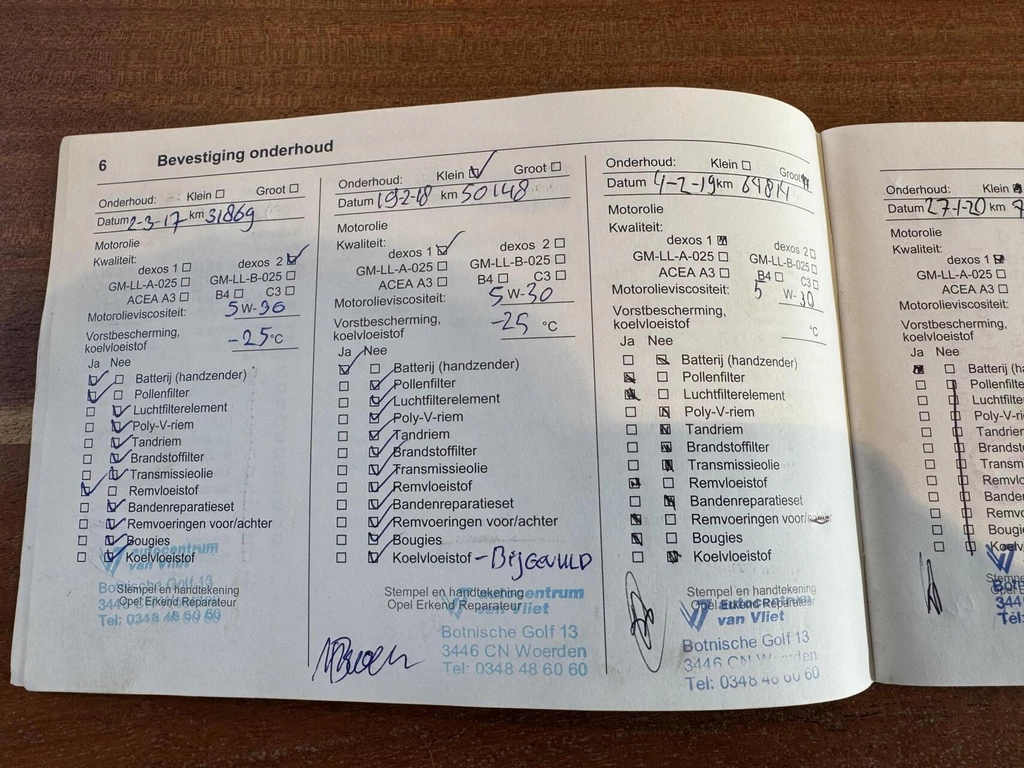 6 Bevestiging onderhoud
Onderhoud: Klein Groot
Datum 2-3-17 km 31869
Motorolie
Kwaliteit:
dexos 1 dexos 2
GM-LL-A-025 GM-LL-B-025
ACEA A3 B4 C3
Motorolieviscositeit: 5 W-30
Vorstbescherming,
koelvloeistof -25 °C
Ja Nee
Batterij (handzender)
Pollenfilter
Luchtfilterelement
Poly-V-riem
Tandriem
Brandstoffilter
Transmissieolie
Remvloeistof
Bandenreparatieset
Remvoeringen voor/achter
Bougies
Koelvloeistof
autocentrum
van Vliet
Stempel en handtekening
Opel Erkend Reparateur
Botnische Golf 13
Tel: 0348 48 60 60
Onderhoud: Klein Groot
Datum 19-2-18 km 50148
Motorolie
Kwaliteit:
dexos 1 dexos 2
GM-LL-A-025 GM-LL-B-025
ACEA A3 B4 C3
Motorolieviscositeit: 5 W-30
Vorstbescherming,
koelvloeistof -25 °C
Ja Nee
Batterij (handzender)
Pollenfilter
Luchtfilterelement
Poly-V-riem
Tandriem
Brandstoffilter
Transmissieolie
Remvloeistof
Bandenreparatieset
Remvoeringen voor/achter
Bougies
Koelvloeistof - Bijgevuld
Stempel en handtekening
Opel Erkend Reparateur
van Vliet
Botnische Golf 13
3446 CN Woerden
Tel: 0348 48 60 60
Onderhoud: Klein Groot
Datum 4-2-19 km 69814
Motorolie
Kwaliteit:
dexos 1 dexos 2
GM-LL-A-025 GM-LL-B-025
ACEA A3 B4 C3
Motorolieviscositeit: 5 W-30
Vorstbescherming,
koelvloeistof °C
Ja Nee
Batterij (handzender)
Pollenfilter
Luchtfilterelement
Poly-V-riem
Tandriem
Brandstoffilter
Transmissieolie
Remvloeistof
Bandenreparatieset
Remvoeringen voor/
Bougies
Koelvloeistof
Stempel en handtekening
Opel Erkend Reparateur
autocentrum
van Vliet
Botnische Golf 13
3446 CN Woerden
Tel: 0348 48 60 60
Onderhoud: Klein
Datum 27-1-20 km 7
Motorolie
Kwaliteit:
dexos 1
GM-LL-A-025
ACEA A3
Motorolieviscositeit:
Vorstbescherming,
koelvloeistof
Ja Nee
Batterij (h
Pollenfilte
Luchtfilte
Poly-V-ri
Tandrier
Brandst
Transm
Remvlo
Bande
Remvo
Bougi
Koelv
Tel: